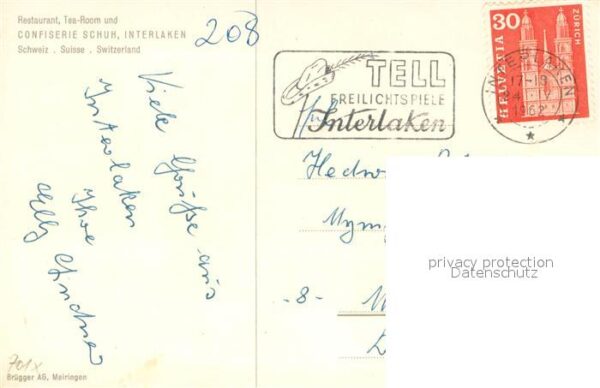 Restaurant, Tea-Room und
CONFISERIE SCHUH, INTERLAKEN
Schweiz . Suisse . Switzerland
208
Viele Grüße aus
Interlaken
Ihre
TELL
FREILICHTSPIELE
Interlaken
30
HELVETIA
ZÜRICH
INTERLAKEN
17-18
1962
-8-
privacy protection
Datenschutz
701x
Brügger AG, Meiringen